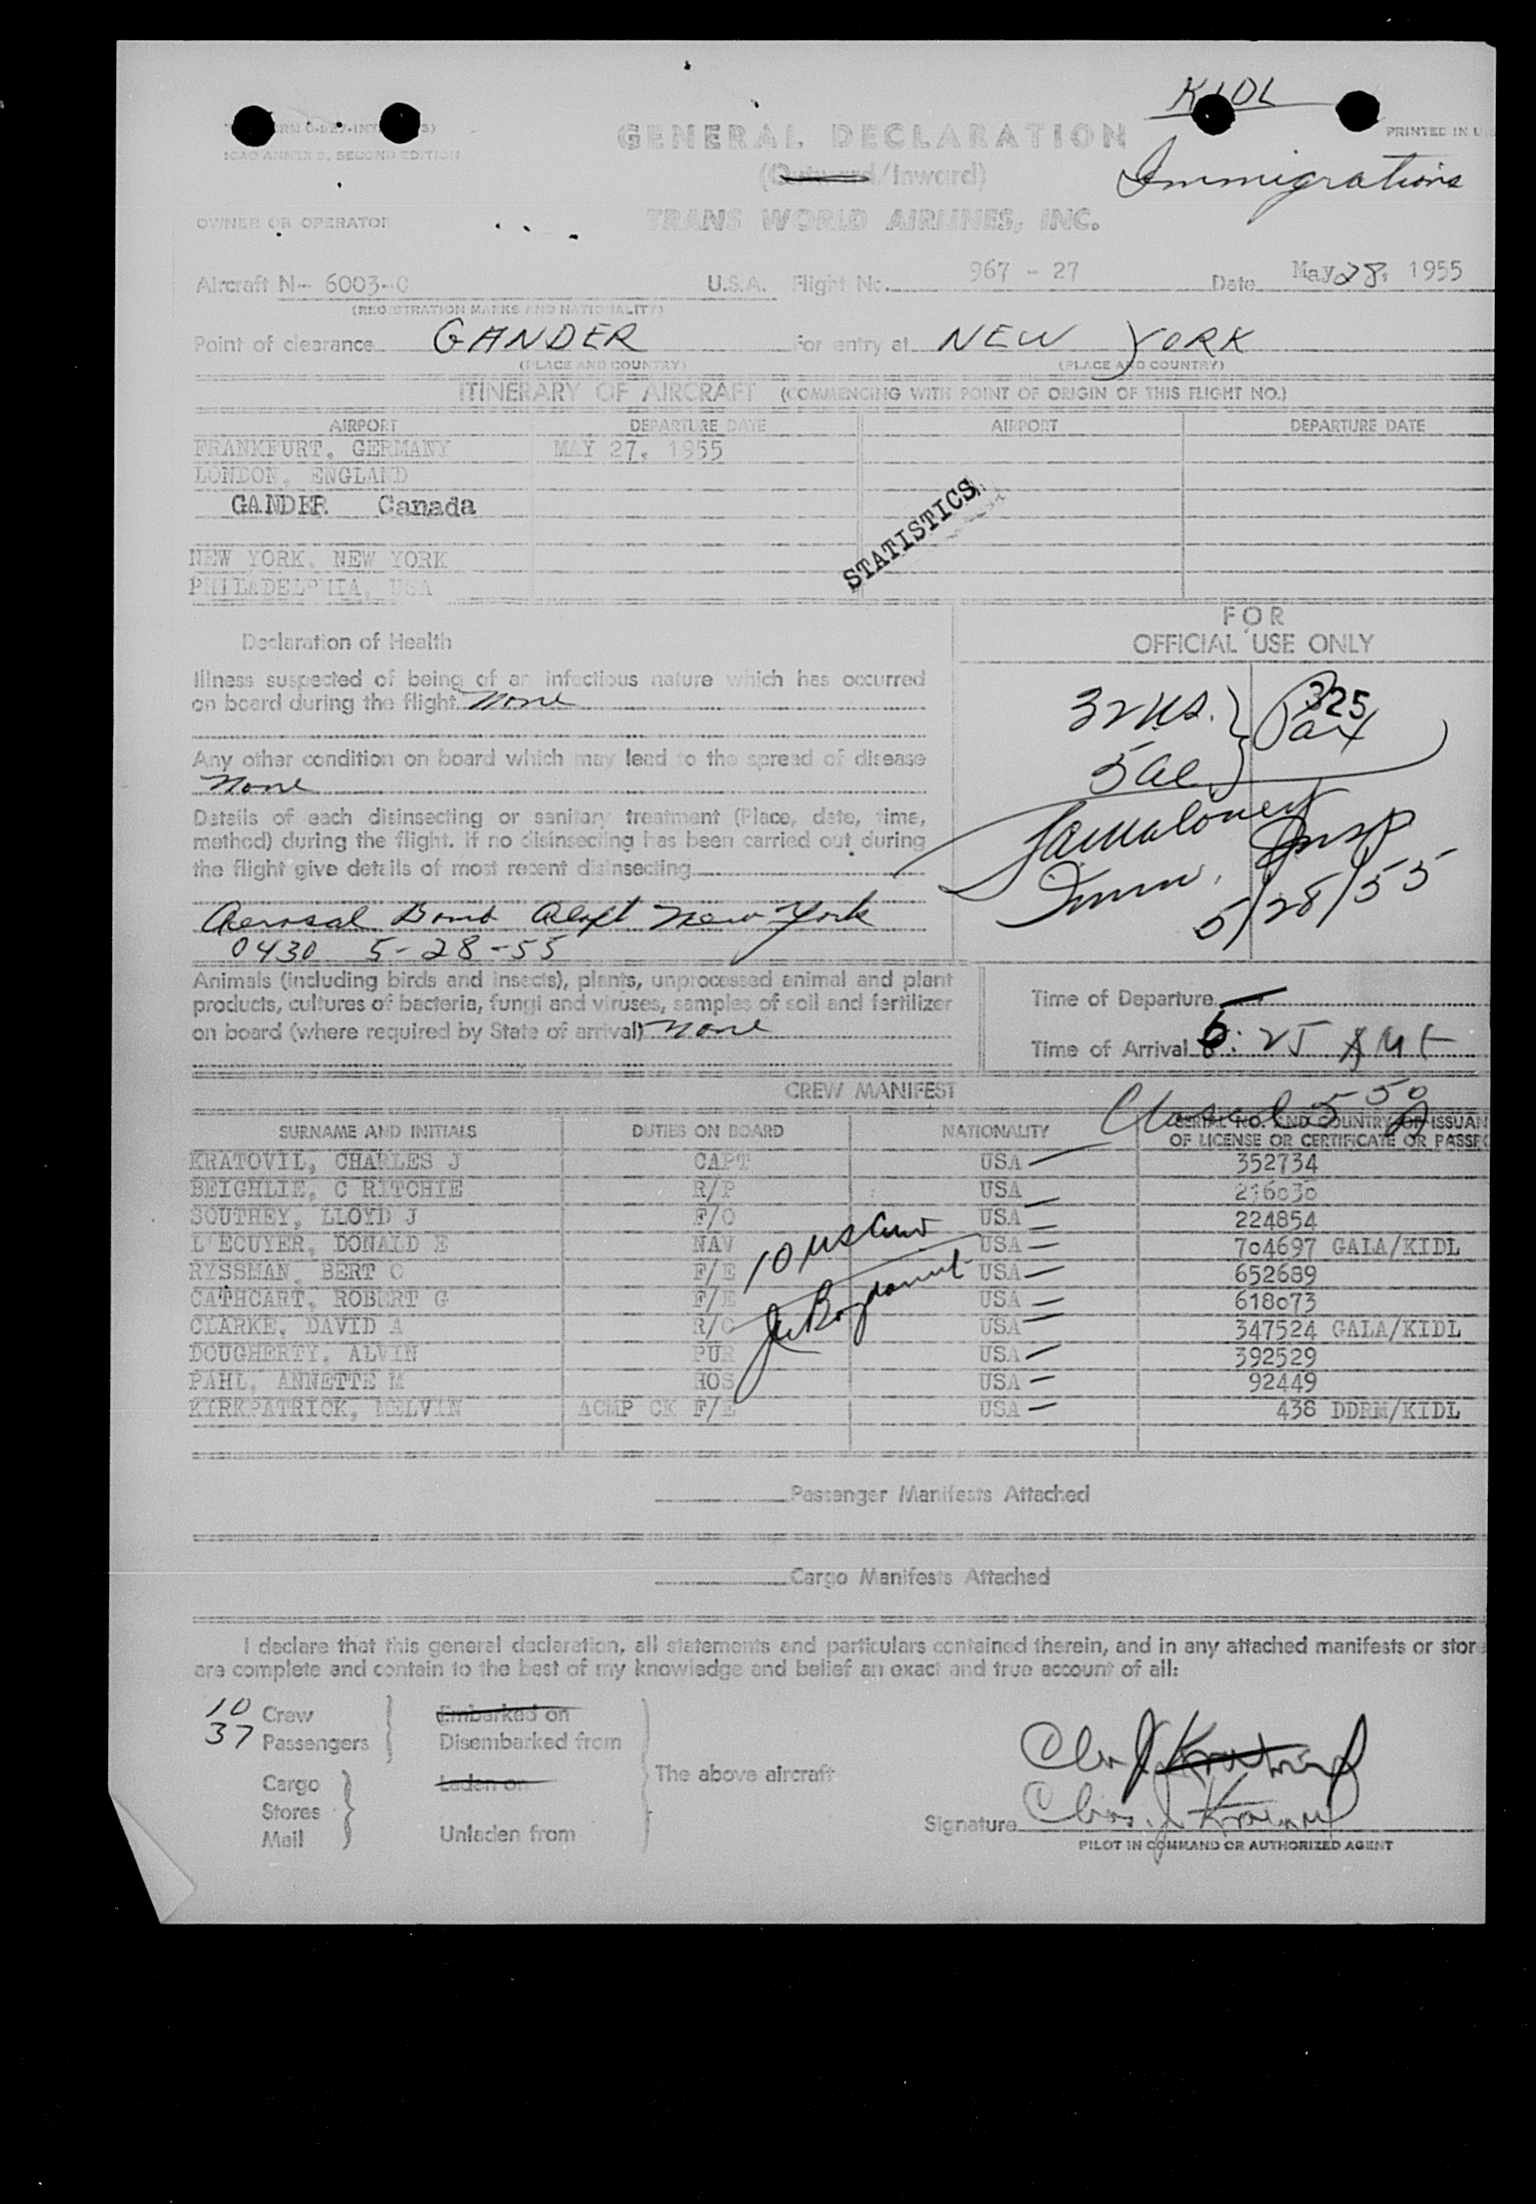 KIDL
ICAO ANNEX 9, SECOND EDITION
GENERAL DECLARATION
PRINTED IN U.S.
(Outward/Inward)
Immigrations
OWNER OR OPERATOR
TRANS WORLD AIRLINES, INC.
Aircraft N- 6003-C U.S.A. Flight No. 967 - 27 Date May 28, 1955
(REGISTRATION MARKS AND NATIONALITY)
Point of clearance GANDER For entry at NEW YORK
(PLACE AND COUNTRY) (PLACE AND COUNTRY)
ITINERARY OF AIRCRAFT (COMMENCING WITH POINT OF ORIGIN OF THIS FLIGHT NO.)
AIRPORT DEPARTURE DATE AIRPORT DEPARTURE DATE
FRANKFURT, GERMANY MAY 27, 1955
LONDON, ENGLAND
GANDER Canada
STATISTICS
NEW YORK, NEW YORK
PHILADELPHIA, USA
FOR
OFFICIAL USE ONLY
Declaration of Health
Illness suspected of being of an infectious nature which has occurred
on board during the flight None
32 US. } 325
5 al } Pax
Any other condition on board which may lead to the spread of disease
None
Details of each disinsecting or sanitary treatment (Place, date, time,
method) during the flight. If no disinsecting has been carried out during
the flight give details of most recent disinsecting
Insp
5/28/55
Aerosol Bomb Aloft New York
0430 5-28-55
Animals (including birds and insects), plants, unprocessed animal and plant
products, cultures of bacteria, fungi and viruses, samples of soil and fertilizer
on board (where required by State of arrival) None
Time of Departure
Time of Arrival 6:25 AMt
CREW MANIFEST
Cleared 5 50
SURNAME AND INITIALS DUTIES ON BOARD NATIONALITY SERIAL NO. AND COUNTRY OF ISSUAN
OF LICENSE OR CERTIFICATE OR PASSPO
KRATOVIL, CHARLES J CAPT USA 352734
BEIGHLIE, C RITCHIE R/P USA 216030
SOUTHEY, LLOYD J F/O USA 224854
L ECUYER, DONALD E NAV USA 704697 GALA/KIDL
RYSSMAN, BERT O F/E USA 652689
CATHCART, ROBERT G F/E USA 618073
CLARKE, DAVID A R/O USA 347524 GALA/KIDL
DOUGHERTY, ALVIN PUR USA 392529
PAHL, ANNETTE M HOS USA 92449
KIRKPATRICK, MELVIN ACMP CK F/E USA 438 DDRM/KIDL
10 US Crew
Passenger Manifests Attached
Cargo Manifests Attached
I declare that this general declaration, all statements and particulars contained therein, and in any attached manifests or store
are complete and contain to the best of my knowledge and belief an exact and true account of all:
10 Crew Embarked on
37 Passengers Disembarked from
The above aircraft
Cargo Laden on
Stores
Mail Unladen from
Chas J Kratovil
Signature Chas. J Kratovil
PILOT IN COMMAND OR AUTHORIZED AGENT